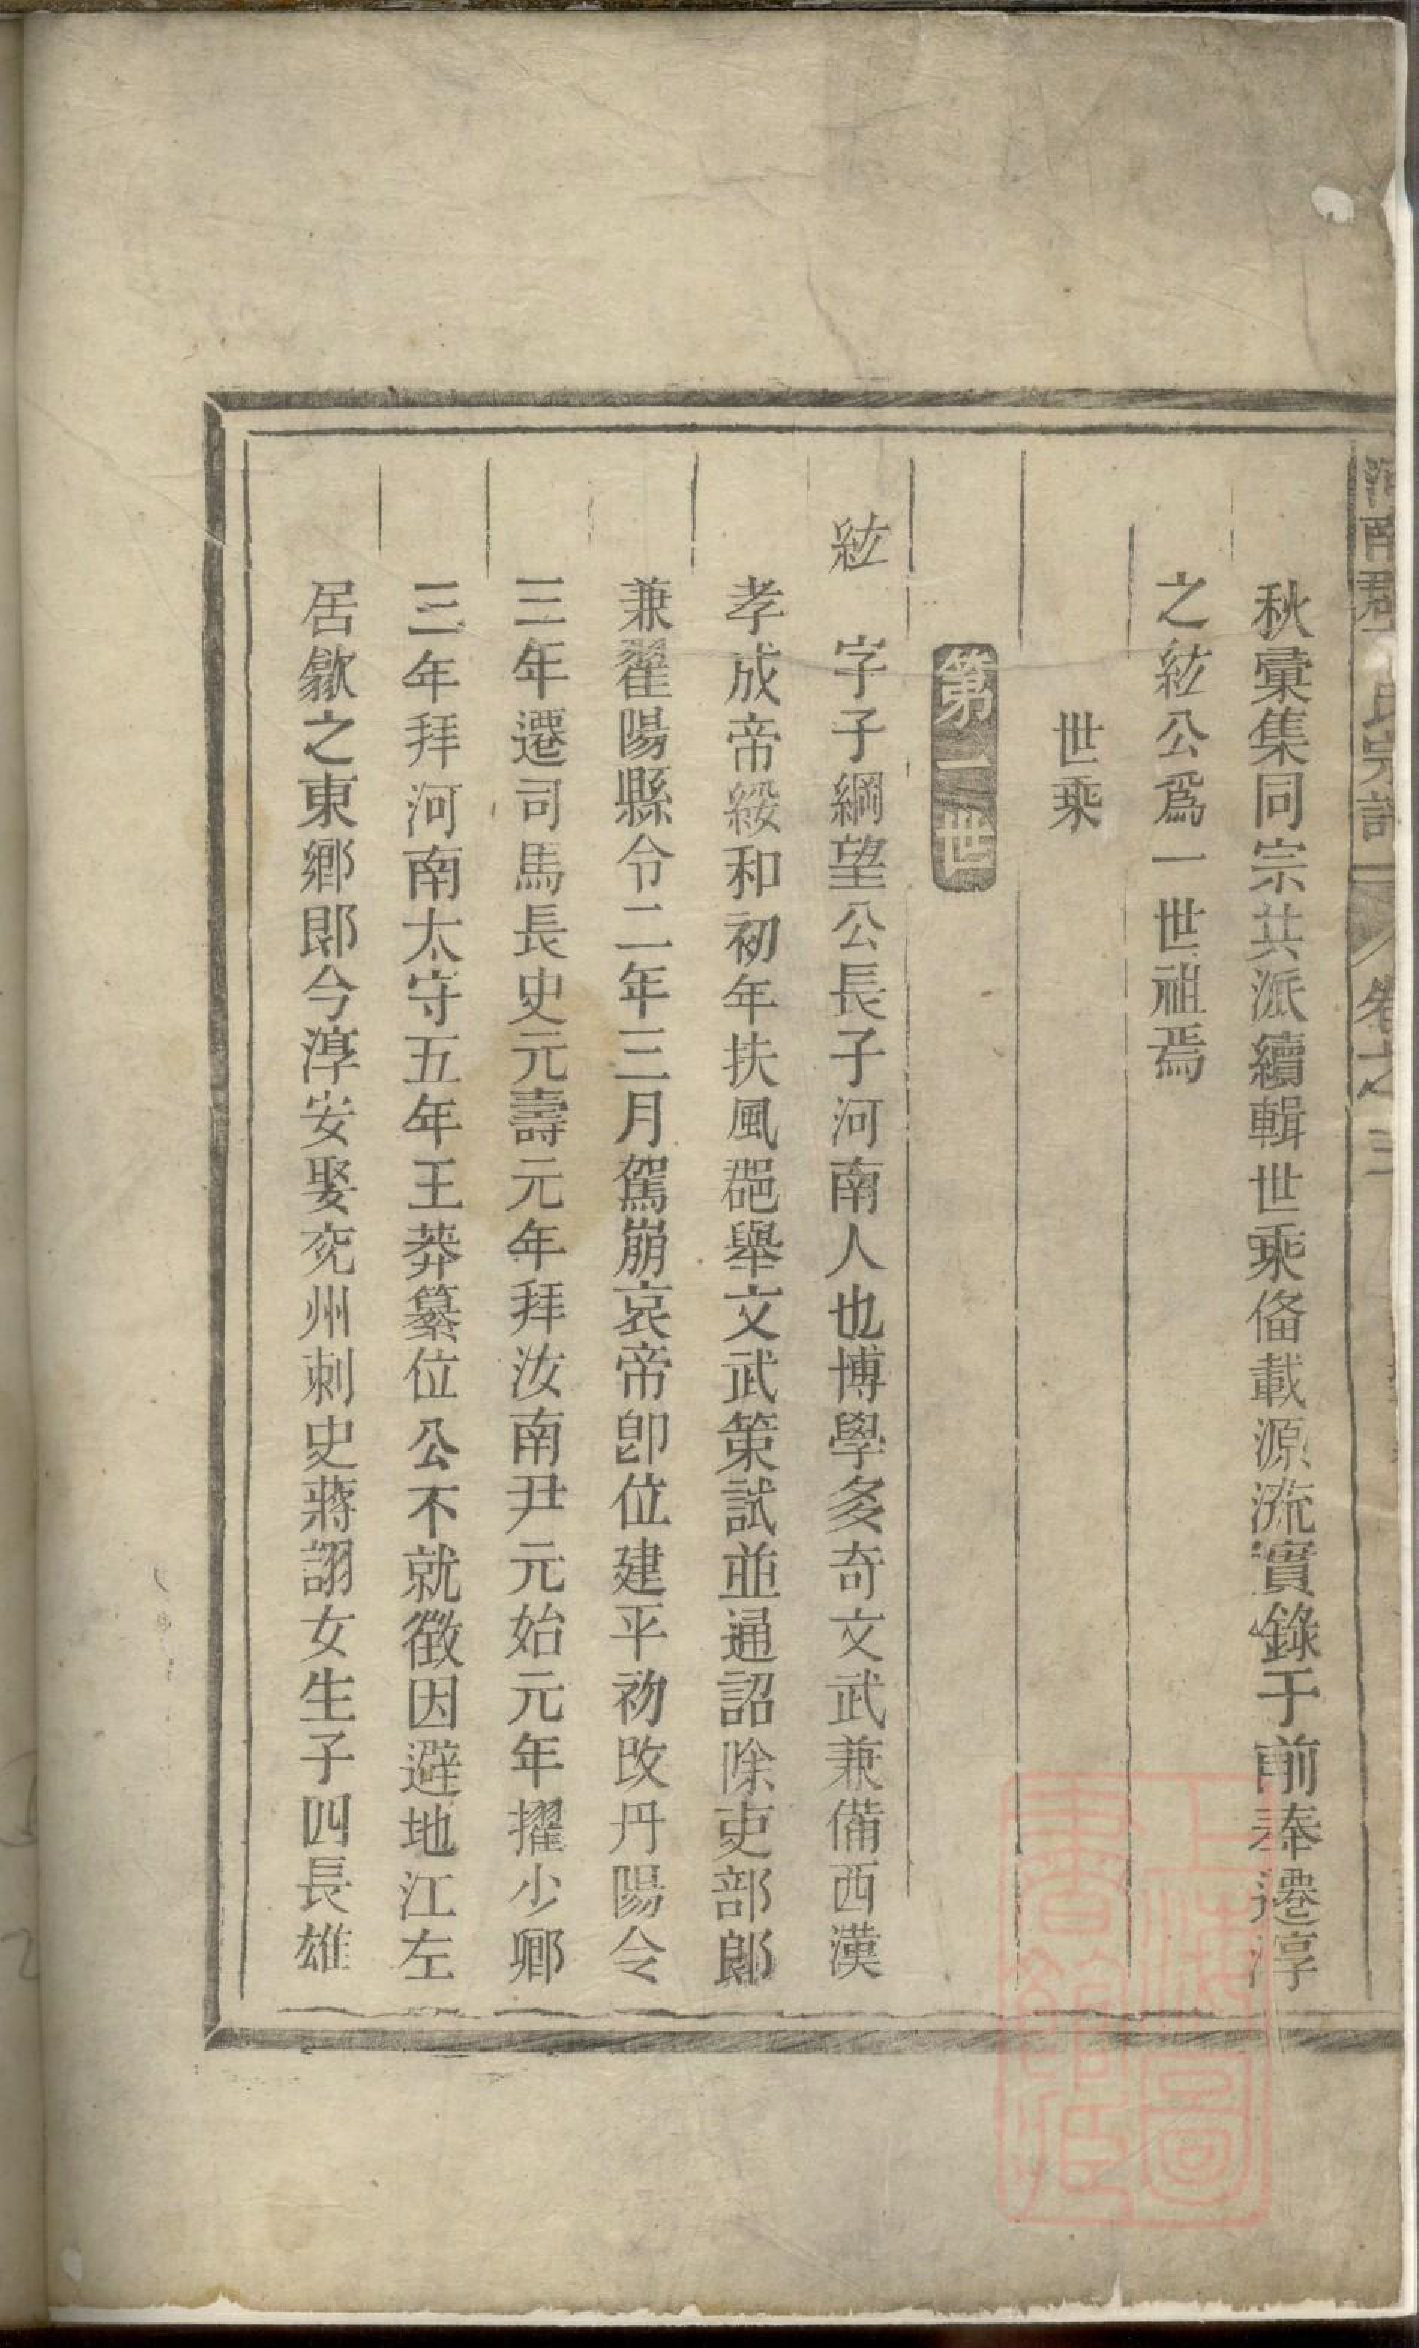 秋彙集同宗共派續輯世乘俻載源流實錄于前奉遷淳
之紘公爲一世祖焉
世乘
第一世
紘 字子綱望公長子河南人也博學多奇文武兼備西漢
孝成帝綏和初年扶風郡舉文武策試並通詔除吏部郎
兼翟陽縣令二年三月駕崩哀帝卽位建平初改丹陽令
三年遷司馬長史元壽元年拜汝南尹元始元年擢少卿
三年拜河南太守五年王莽纂位公不就徵因避地江左
居歙之東鄉郎今淳安娶兖州刺史蔣詡女生子四長雄
河南郡 氏宗譜 卷之三
上海圖書館藏